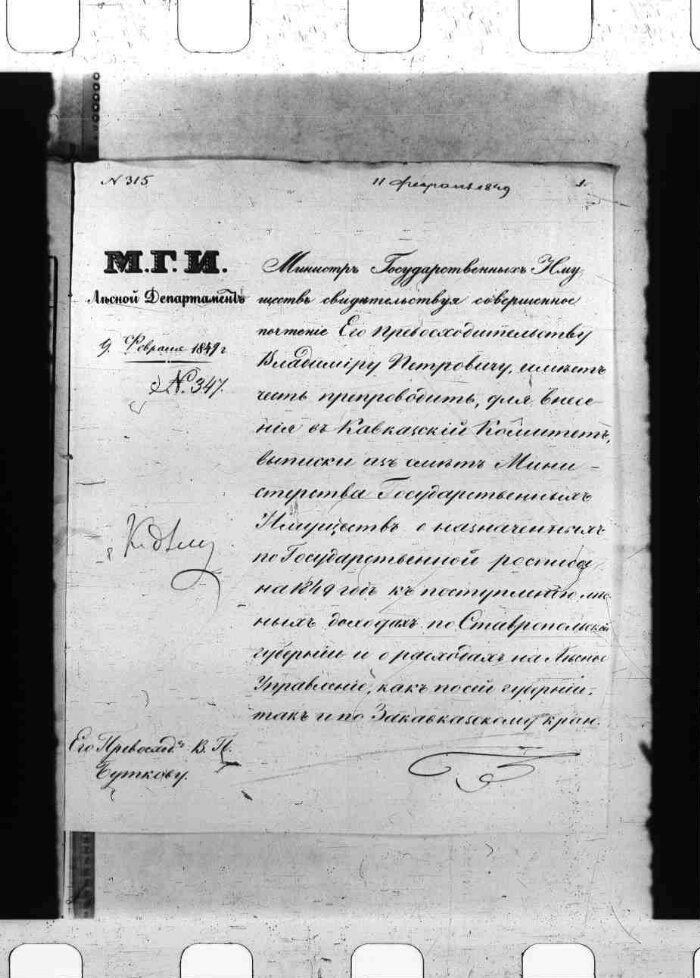 N 315
11 февраля 1849
1.
М.Г.И.
Лѣсной Департаментъ
9 Февраля 1849 г
N. 347.
Министръ Государственныхъ Иму
ществъ свидѣтельствуя совершенное
почтеніе Его Превосходительству
Владиміру Петровичу, имѣетъ
честь препроводить, для внесе
нія въ Кавказскій Комитетъ,
выписки изъ смѣтъ Мини-
стерства Государственныхъ
Имуществъ о назначенныхъ
по Государственной росписи
на 1849 годъ къ поступленію лѣс
ныхъ доходахъ по Ставропольской
губерніи и о расходахъ на Лѣсное
Управленіе, какъ по сей губерніи,
такъ и по Закавказскому краю.
К дѣлу
Его Превосход. В. П.
Буткову.